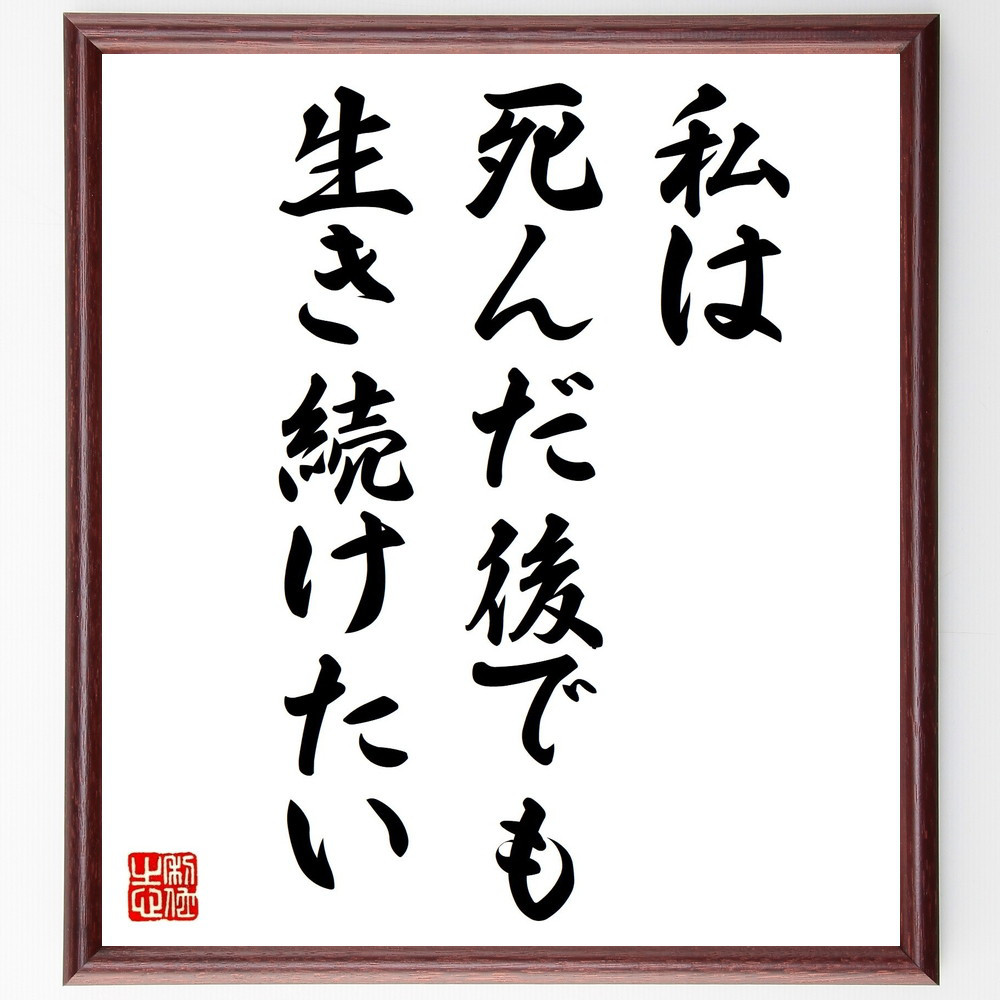 私は
死んだ後でも
生き続けたい